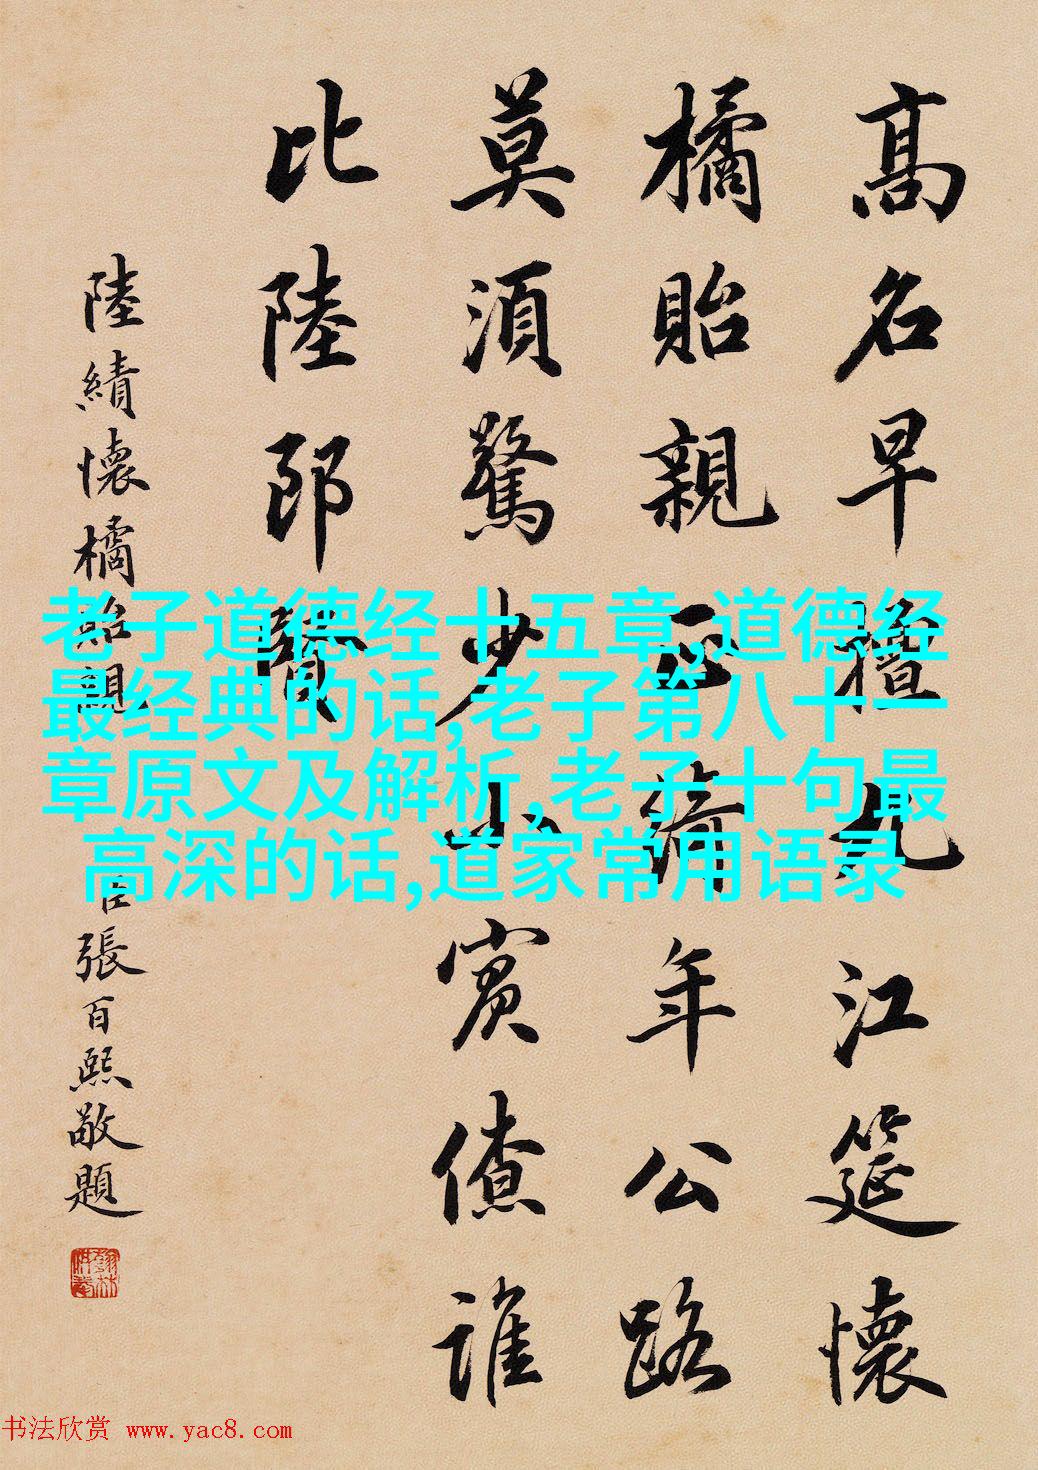 髙名早擅九江筵懷
橘貽親正綺年公路
莫須驚少小賓僚誰
比陸郎賢
陸績懷橘貽親
臣張百熙敬題
老子道德经十五章,道德经
最经典的话,老子第八十一
章原文及解析,老子十句最
高深的话,道家常用语录
书法欣赏 www.yac8.com